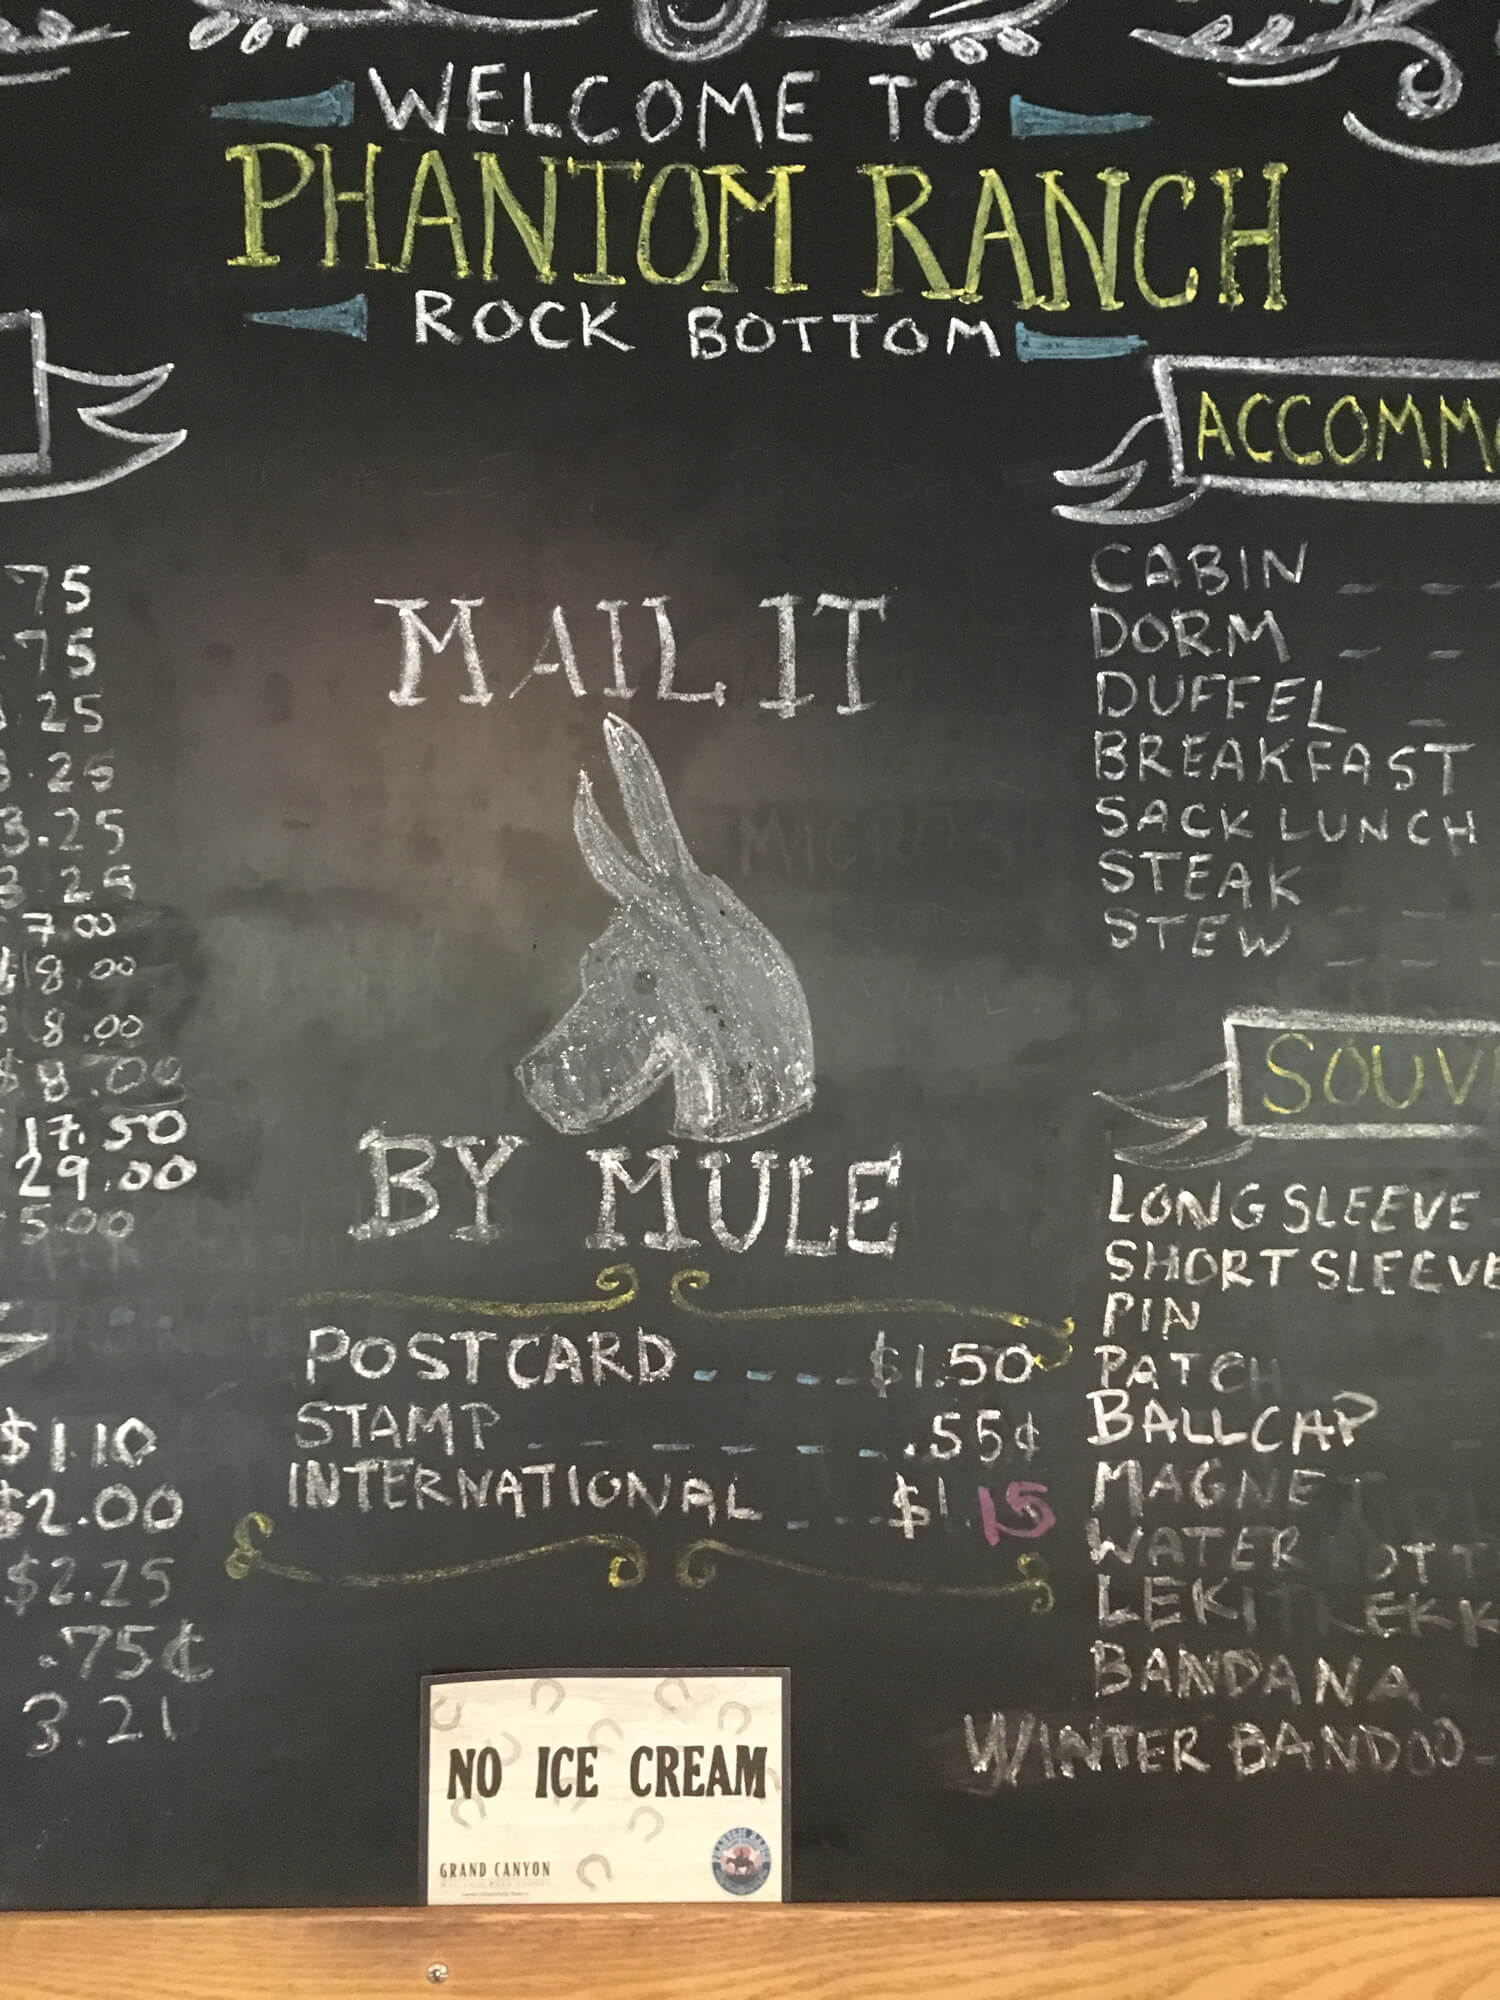 WELCOME TO
PHANTOM RANCH
ROCK BOTTOM
75
.75
.25
3.25
3.25
3.25
7.00
18.00
$8.00
$8.00
17.50
29.00
5.00
$1.10
$2.00
$2.25
.75¢
3.21
MAIL IT
BY MULE
POSTCARD $1.50
STAMP .55¢
INTERNATIONAL $1.15
ACCOMM
CABIN
DORM
DUFFEL
BREAKFAST
SACK LUNCH
STEAK
STEW
SOUV
LONG SLEEVE
SHORT SLEEVE
PIN
PATCH
BALLCAP
MAGNET
WATER OTT
LEKI TREKK
BANDANA
WINTER BANDOO
NO ICE CREAM
GRAND CANYON